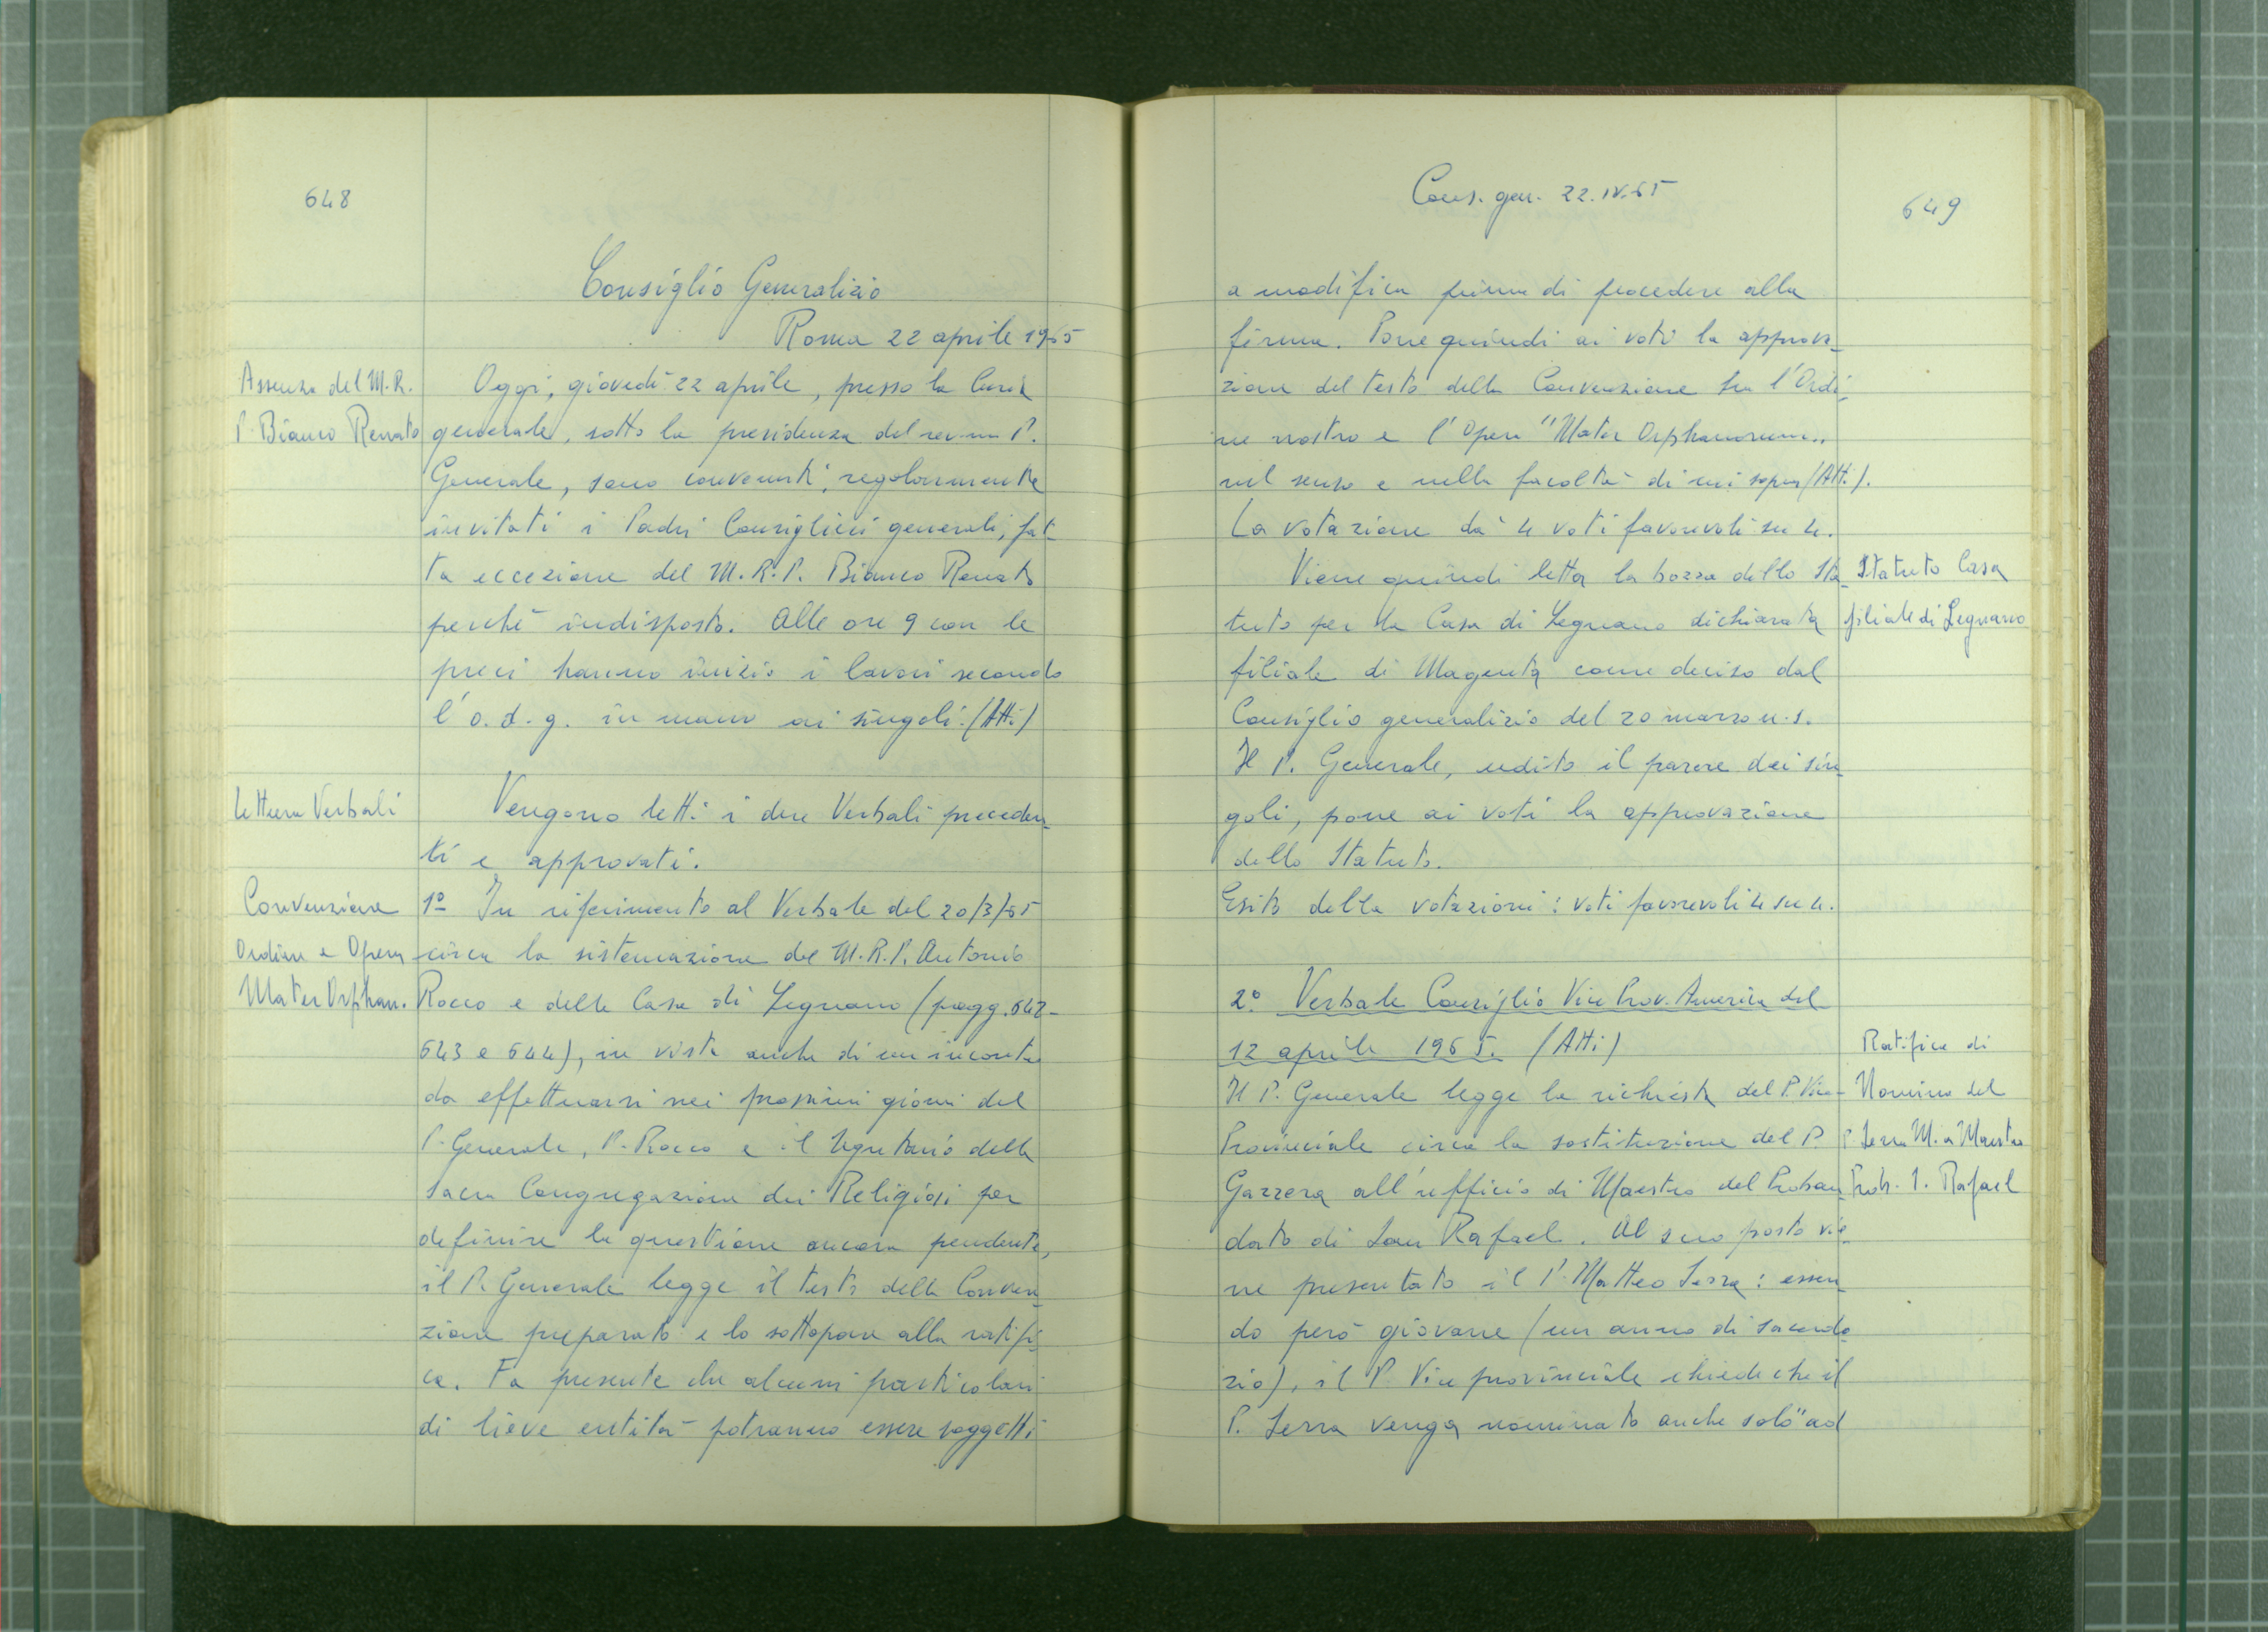 648
Consiglio Generalizio
Roma 22 aprile 1965
Assenza del M.R.
P. Bianco Renato
Oggi, giovedì 22 aprile, presso la Curia
generale, sotto la presidenza del rev.mo P.
Generale, sono convenuti, regolarmente
invitati i Padri Consiglieri generali, fat-
ta eccezione del M.R.P. Bianco Renato
perché indisposto. Alle ore 9 con le
preci hanno inizio i lavori secondo
l'o.d.g. in mano ai singoli. (Atti)
Lettura Verbali
Vengono letti i due Verbali preceden-
ti e approvati.
Convenzione
Ordine e Opera
Mater Orphan.
1º In riferimento al Verbale del 20/3/65
circa la sistemazione del M.R.P. Antonio
Rocco e della Casa di Legnano (pagg. 642-
643 e 644), in vista anche di un incontro
da effettuarsi nei prossimi giorni del
P. Generale, P. Rocco e il Segretario della
Sacra Congregazione dei Religiosi per
definire la questione ancora pendente,
il P. Generale legge il testo della Conven-
zione preparato e lo sottopone alla ratifi-
ca. Fa presente che alcuni particolari
di lieve entità potranno essere soggetti
Cons. gen. 22.IV.65
649
a modifica prima di procedere alla
firma. Pone quindi ai voti la approva-
zione del testo della Convenzione tra l'Ordi-
ne nostro e l'Opera "Mater Orphanorum"
nel senso e nella facoltà di cui sopra (Atti).
La votazione dà 4 voti favorevoli su 4.
Viene quindi letta la bozza dello Sta-
tuto per la Casa di Legnano dichiarata
filiale di Magenta come deciso dal
Consiglio generalizio del 20 marzo u.s.
Il P. Generale, udito il parere dei sin-
goli, pone ai voti la approvazione
dello Statuto.
Esito della votazioni: voti favorevoli 4 su 4.
Statuto Casa
filiale di Legnano
2º Verbale Consiglio Vice Prov. America del
12 aprile 1965. (Atti)
Il P. Generale legge la richiesta del P. Vice-
Provinciale circa la sostituzione del P.
Gazzera all'ufficio di Maestro del Proban-
dato di San Rafael. Al suo posto vie-
ne presentato il P. Matteo Serra: essen-
do però giovane (un anno di sacerdo-
zio), il P. Vice provinciale chiede che il
P. Serra venga nominato anche solo "ad
Ratifica di
Nomina del
P. Serra M. a Maestro
Prob. S. Rafael